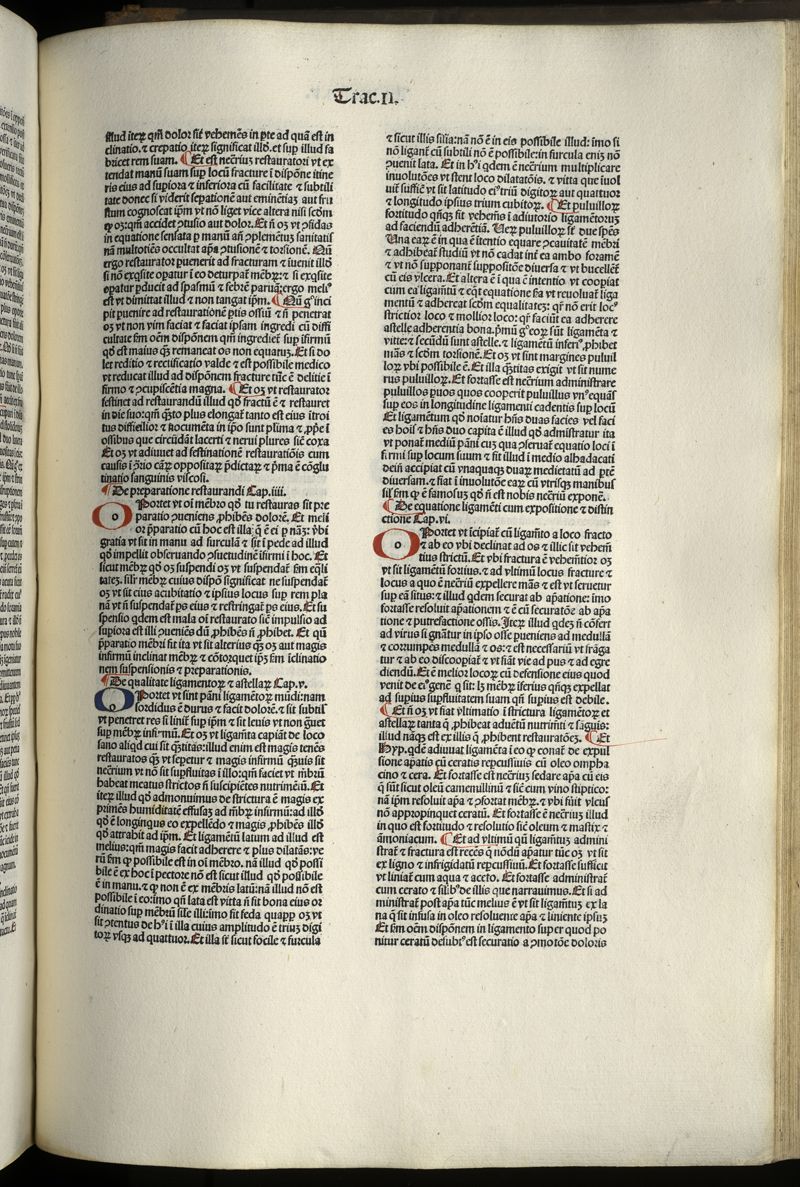 Trac.II.
illud iteꝝ qm̄ dolor sit̄ vehemēs in ꝑte ad quā est in
clinatio.⁊ crepatio iteꝝ significat illđ.et sup illud fa
bricet rem suam. ¶Et est necr̄ius restauratori vt ex
tendat manū suam sup locū fracture ī dispōne itine
ris eius ad supiora ⁊ inferiora cū facilitate ⁊ subtili
tate donec si viderit sepationē aut eminētiaȝ aut fru
stum cognoscat ip̄m vt nō liget vice altera nisi scđm
accidet ꝯtusio aut dolor.Et n̄ oȝ vt ꝯfidas
in equatione sensata ꝑ manū an̄ ꝯplemētuȝ sanitatis
nā multotiēs occultat apa ꝯtusionē ⁊ torsionē. Nū
ergo restaurator puenerit ad fracturam ⁊ iuenit illō
si nō exqsite opatur ī eo deturpat̄ mēbꝝ:⁊ si exqsite
opatur ꝓducit ad spasmū ⁊ febrē paruā:ergo meliꝰ
est vt dimittat illud ⁊ non tangat ip̄m. ¶Nū gͦ inci
pit puenire ad restaurationē ꝑtis ossiū ⁊ n̄ penetrat
oȝ vt non vim faciat ⁊ faciat ipsam ingredi cū diffi
cultate scđm oēm dispōnem qm̄ ingredieť sup ifirmū
qđ est maius ꝙ remaneat os non equanȝ.Et si do
let reditio ⁊ rectificatio valde ⁊ est possibile medico
vt reducat illud ad dispōnem fracture tūc ē delitie i
firmo ⁊ ꝯcupiscētia magna. ¶Et oȝ vt restaurator
festinet ad restaurandū illud qđ fractū ē ⁊ restauret
in die suo:qm̄ qͣ̄to plus elongat̄ tanto est eius itroi
tus difficilior ⁊ nocumēta in ip̄o sunt plima ⁊ ꝓpe i
ossibus que circūdāt lacerti ⁊ nerui plures sic̄ coxa
Et oȝ vt adiuuet ad festinationē restauratiōis cum
causis
tinatio sanguinis viscosi.
¶De preparatione restaurandi Cap.iiii.
OPortet vt oī mēbro qđ tu restauras sit pre
paratio ꝯueniens ꝓhibēs dolorē. Et meli
or p̄paratio cū hoc est illa
gratia vt sit in manu ad surculā ⁊ sit i pede ad illud
qđ impellit obseruando ꝯsuetudinē ifirmi i hoc. Et
sicut mēbꝝ qđ oȝ suspendi oȝ vt suspendat̄ scđm eqli
tateȝ. silr̄ mēbꝝ cuius dispō significat ne suspendat̄
oȝ vt sit eius acubitatio ⁊ ipsius locus sup rem pla
nā vt n̄ suspendat̄ ꝑs eius ⁊ restringat̄ ꝑs eius.Et su
spensio qđem est mala oī restaurato sic̄ impulsio ad
supiora est illi ꝯueniēs dū ꝓhibēs n̄ ꝓhibet. Et qū
p̄paratio mēbri fit ita vt sit alterius qͣȝ oȝ aut magis
infirmū inclinat mēbꝝ ⁊ cōtorquet ip̄ȝ scđm iclinatio
nem suspensionis ⁊ preparationis.
¶De qualitate ligamentoꝝ ⁊ astellaꝝ Cap.v.
OPortet vt sint pāni ligamētoꝝ mūdi:nam
sordidus ē durus ⁊ facit dolorē.⁊ sit subtil
vt penetret res si linit̄ sup ip̄m ⁊ sit leuis vt non gͣuet
sup mēbꝝ infirmū. Et oȝ vt ligam̄ta capiāt de loco
sano aliqđ cui sit qͣ̄titas:illud enim est magis tenēs
restauratos qͣȝ vt sepetur ⁊ magis infirmū qͣ̄uis sit
necr̄ium vt nō sit supfluitas i illo:qm̄ faciet vt mēbrū
habeat meatus strictos n̄ suscipiētes nutrimētū. Et
iteꝝ illud qđ admonuimus de strictura ē magis ex
primēs humiditatē effusaȝ ad mēbꝝ infirmū:ad illō
qđ ē longinqus eo expellēdo ⁊ magis ꝓhibēs illō
qđ attrahit̄ ad ip̄m. Et ligamētū latum ad illud est
melius:qm̄ magis facit adherere ⁊ plus dilatās:ve
rū scđm ꝙ possibile est in oī mēbro. nā illud qđ possi
bile ē ex hoc ī pectore nō est sicut illud qđ possibile
ē in manu.⁊ ꝙ non ē ex mēbris latū:nā illud nō est
possibile i eo:imo qn̄ lata est vitta n̄ sit bona eius or
dinatio sup mēbrū sile illi:imo sit feda quapp oȝ vt
sit ꝯtentus de hͦ i illa cuius amplitudo ē triuȝ digi
toꝝ vsqȝ ad quattuor.Et illa st̄ sicut focile ⁊ furcula
⁊ sicut illis silia:nā nō ē in eis possibile illud: imo si
nō ligant̄ cū subtili nō ē possibile:in furcula eniȝ nō
ꝯuenit lata. Et in hͦ qđem ē necr̄ium multiplicare
inuolutōes vt stent loco dilatatōis. ⁊ vitta que iuol
uit̄ suffic̄ vt sit latitudo eiͦ triū digitoꝝ aut quattuor
⁊ longitudo ipsius trium cubitoꝝ. ¶Et puluilloꝝ
fortitudo qͣ̄qȝ fit vehemēs ī adiutorio ligamētoruȝ
ad faciendū adherētiā. Veꝝ puluilloꝝ st̄ due spēs
Una eaꝝ ē in qua ē itentio equare ꝯcauitatē mēbri
⁊ adhibeat̄ studiū vt nō cadat int̄ ea ambo foramē
⁊ vt nō supponant̄ suppositōe diuersa ⁊ vt bucellēt̄
cū eis vlcera.Et altera ē i qua ē intentio vt coopiat̄
cum ea ligam̄tū ⁊ eqt̄ equatione sua vt reuoluat̄ liga
mentū ⁊ adhereat scđm equalitateȝ: qr̄ nō erit locͦ
strictior loco ⁊ mollior loco: qr̄ faciūt ea adherere
astelle adherentia bona.pmū gͦ eoꝝ sūt ligamēta ⁊
vitte:⁊ secūdū sunt astelle.⁊ ligamētū inferiͦ ꝓhibet
mās ⁊ scđm torsionē. Et oȝ vt sint margines puluil
loꝝ vbi possibile ē. Et illa qͣ̄titas exigit vt sit nume
rus puluilloꝝ.Et fortasse est necr̄ium administrare
puluillos puos quos cooperit puluillus vnͦ equās
sup eos in longitudine ligamenti cadentis sup locū
Et ligamētum qđ noīatur hn̄s duas facies vel faci
es hoīs ⁊ hn̄s duo capita ē illud qđ adm̄istratur ita
vt ponat̄ mediū pāni cuȝ qua ꝯseruat̄ equatio loci i
firmi sup locum suum ⁊ sit illud i medio alhadacati
dein̄ accipiat cū vnaquaqȝ duaꝝ medietatū ad ꝑtē
diuersam.⁊ fiat ī inuolutōe eaꝝ cū vtrisqȝ manibus
sil scđm ꝙ ē famosuȝ qđ n̄ est nobis necr̄iū exponē.
¶De equatione ligam̄ti cum expositione ⁊ distin
ctione Cap.vi.
OPortet vt icipiat̄ cū ligam̄to a loco fracto
⁊ ab eo vbi declinat ad os ⁊ illic sit vehem̄
tius strictū. Et vbi fractura ē vehemētior oȝ
vt sit ligamētū fortius.⁊ ad vltimū locus fracture ⁊
locus a quo ē necr̄iū expellere māȝ ⁊ est vt seruetur
sup eā situs:⁊ illud qđem securat ab apatione: imo
fortasse resoluit apationem ⁊ ē cū securatōe ab apa
tione ⁊ putrefactione ossi. Iteꝝ illud qđeȝ n̄ cōfert
ad virus si gnātur in ipso osse pueniens ad medullā
⁊ corrumpes medullā ⁊ os:⁊ est necessariū vt frāga
tur ⁊ ab eo discoopiat̄ ⁊ vt fiāt vie ad pus ⁊ ad egre
diendū.Et ē melior locoꝝ cū defensione eius quod
venit de eiͦ genē ꝙ sit: lȝ mēbꝝ iferius qn̄qȝ expellat
ad supius supfluitatem suam qn̄ supius est debile.
¶Et n̄ oȝ vt fiat vltimatio i strictura ligamētoꝝ et
astellaꝝ tanta ꝙ ꝓhibeat aduētū nutrim̄ti ⁊ sāguis:
illud nāqȝ est ex illis q̄ ꝓhibent restauratōeȝ. ¶Et
Hyp.qđē adiuuat ligamēta i eo ꝙ conat̄ de expul
sione apatis cū ceratis repcussiuis cū oleo ompha
cino ⁊ cera. Et fortasse est necr̄iuȝ sedare apa cū eis
q̄ sūt sicut oleū camemillinū ⁊ sic̄ cum vino stiptico:
nā ip̄m resoluit apa ⁊ ꝯfortat mēbꝝ.⁊ vbi fūit vlcus
nō appropinquet ceratū. Et fortasse ē necr̄ius illud
in quo est fortitudo ⁊ resolutio sic̄ oleum ⁊ mastix ⁊
āmoniacum. ¶Et ad vltimū qn̄ ligam̄tus admini
strat̄ ⁊ fractura est recēs q̄ nōdū apatur tūc oȝ vt sit
ex ligno ⁊ infrigidatū repcussiuū.Et fortasse sufficit
vt liniat̄ cum aqua ⁊ aceto. Et fortasse administrat̄
cum cerato ⁊ silibͦ de illis que narrauimus. Et si ad
ministrat̄ post apa tūc melius ē vt sit ligam̄tuȝ ex la
na q̄ sit infusa in oleo resoluente apa ⁊ liniente ipsuȝ
Et scđm oēm dispōnem in ligamento super quod po
nitur ceratū desubtͦ est securatio a ꝯmotōe doloris